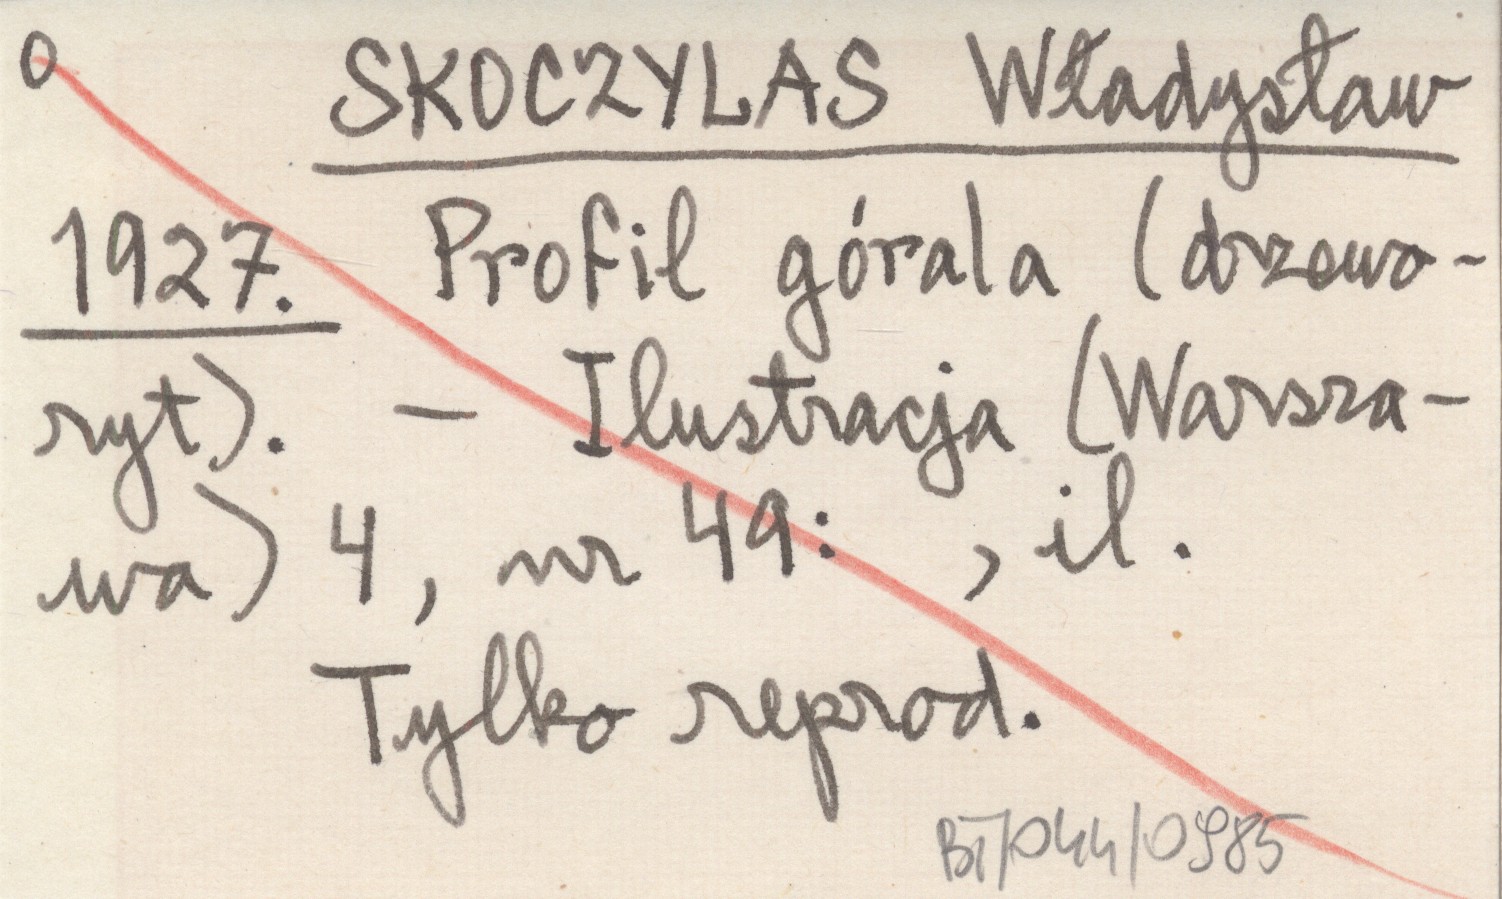 O
SKOCZYLAS Władysław
1927. Profil górala (drzewo-
ryt). — Ilustracja (Warsza-
wa) 4, nr 49: , il.
Tylko reprod.
BT/044/0985